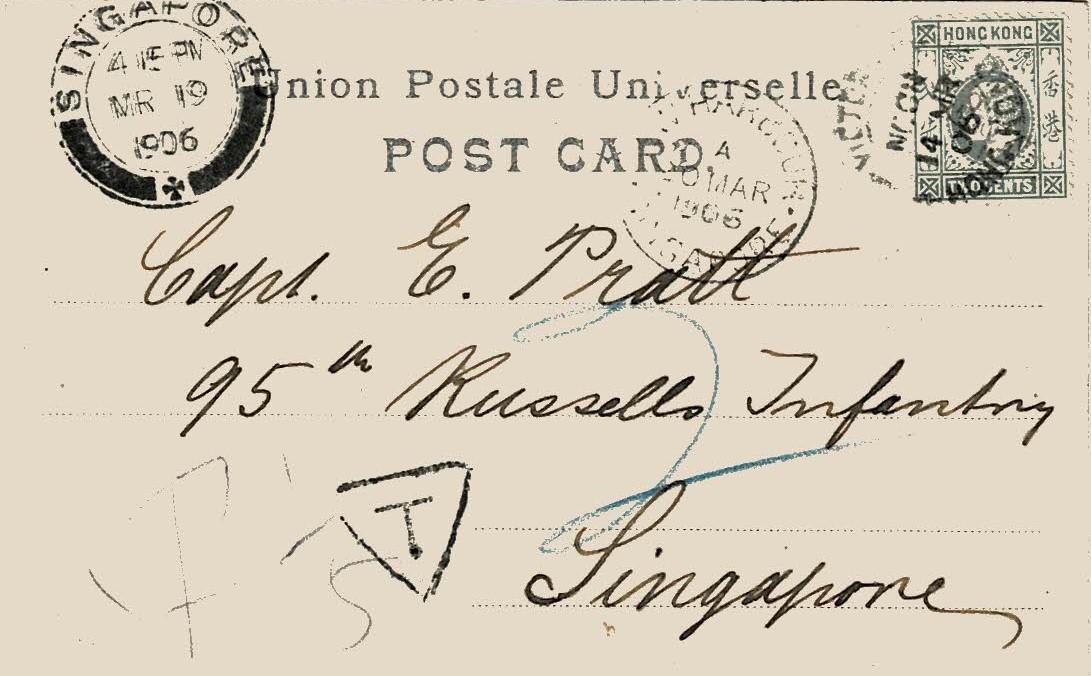 SINGAPORE
4 15 PM
MR 19
1906
Union Postale Universelle
POST CARD.
HONG KONG
香港
TWO CENTS
VICTORIA
14 MR
06
HONG KONG
A
20 MAR
1906
SINGAPORE
Capt. E. Pratt
95th Russells Infantry
2
T
Singapore